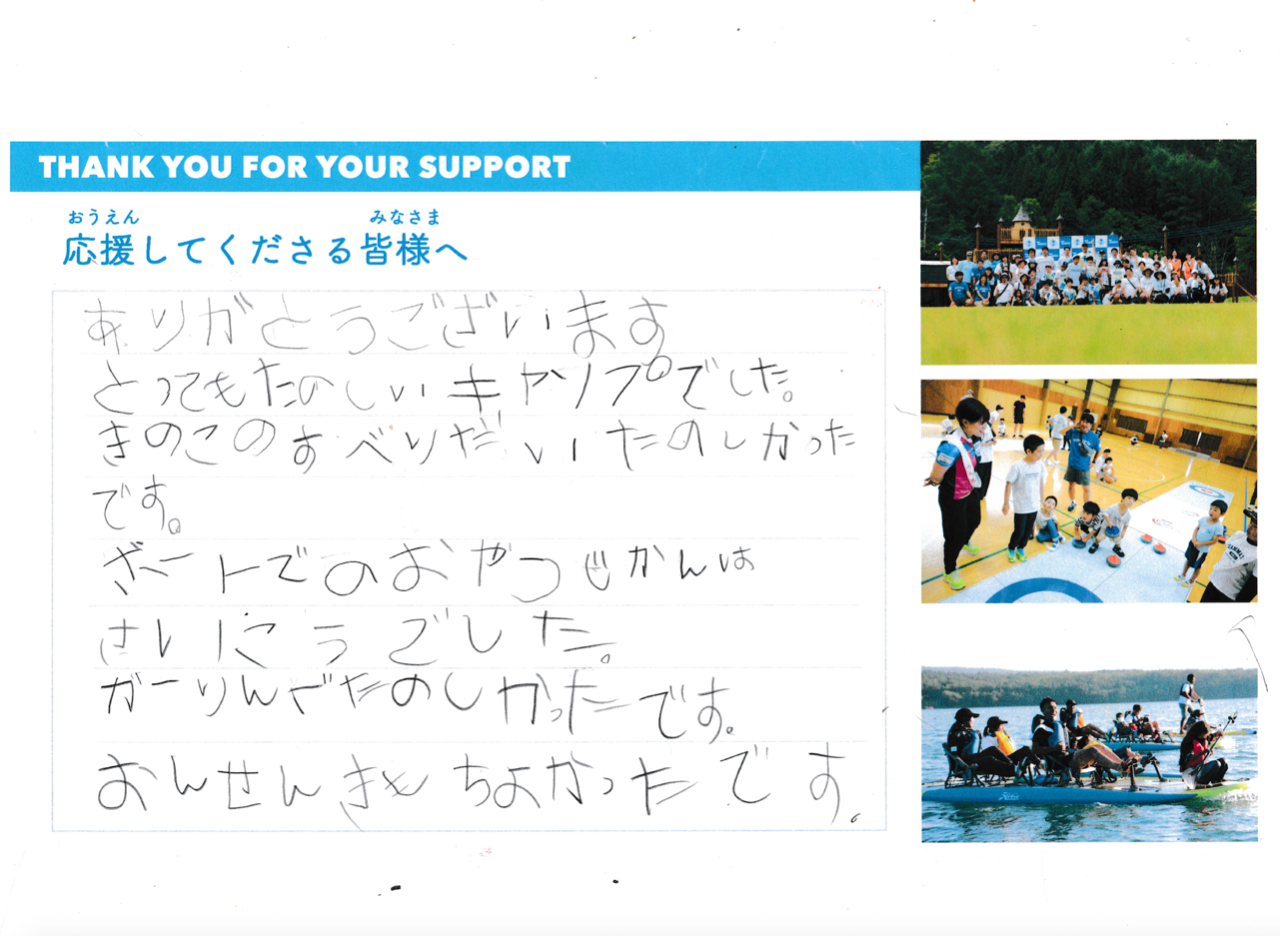 THANK YOU FOR YOUR SUPPORT
おうえん みなさま
応援してくださる皆様へ
ありがとうございます
とってもたのしいキャンプでした。
きのこのすべりだいたのしかった
です。
ボートでのおやつじかんは
さいこうでした。
がーりんざたのしかったです。
おんせんきもちよかったです。